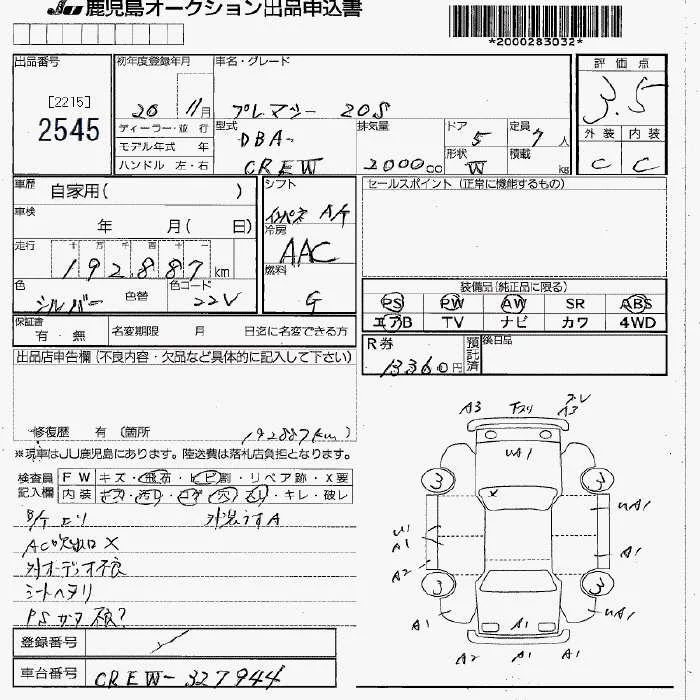 JU 鹿児島オークション出品申込書
*2000283032*
出品番号
[2215]
2545
初年度登録年月
20 11月
ディーラー・並行
モデル年式 年
ハンドル 左・右
車名・グレード
プレマシー 20S
型式
DBA-
CREW
排気量
2000cc
ドア
5
形状
W
定員
7人
積載
kg
評価点
3.5
外装 内装
C C
車歴
自家用( )
車検
年 月( 日)
走行
十 万 千 百 十 一
192887km
色
シルバー 色替
色コード
22V
シフト
インパネ A/T
冷房
AAC
燃料
G
セールスポイント (正常に機能するもの)
装備品(純正品に限る)
PS PW AW SR ABS
エアB TV ナビ カワ 4WD
保証書
有・無
名変期限 月 日迄に名変できる方
R券
13360円
預託済
後日品
出品店申告欄(不良内容・欠品など具体的に記入して下さい)
修復歴 有 (箇所 192887km)
※現車はJU鹿児島にあります。陸送費は落札店負担となります。
検査員
記入欄
FW キズ・飛石・ヒビ割・リペア跡・X要
内装 キズ・汚リ・コゲ・穴・スレ・キレ・破レ
AC吹出口X
外オーディオ不良
シートヘタリ
登録番号
車台番号 CREW-327944
A3 下スリ A3
UA1
3 3
X
U1
A1
UA1
A2
A1
3 3
UA1
A1 A1
A2 A1 A1